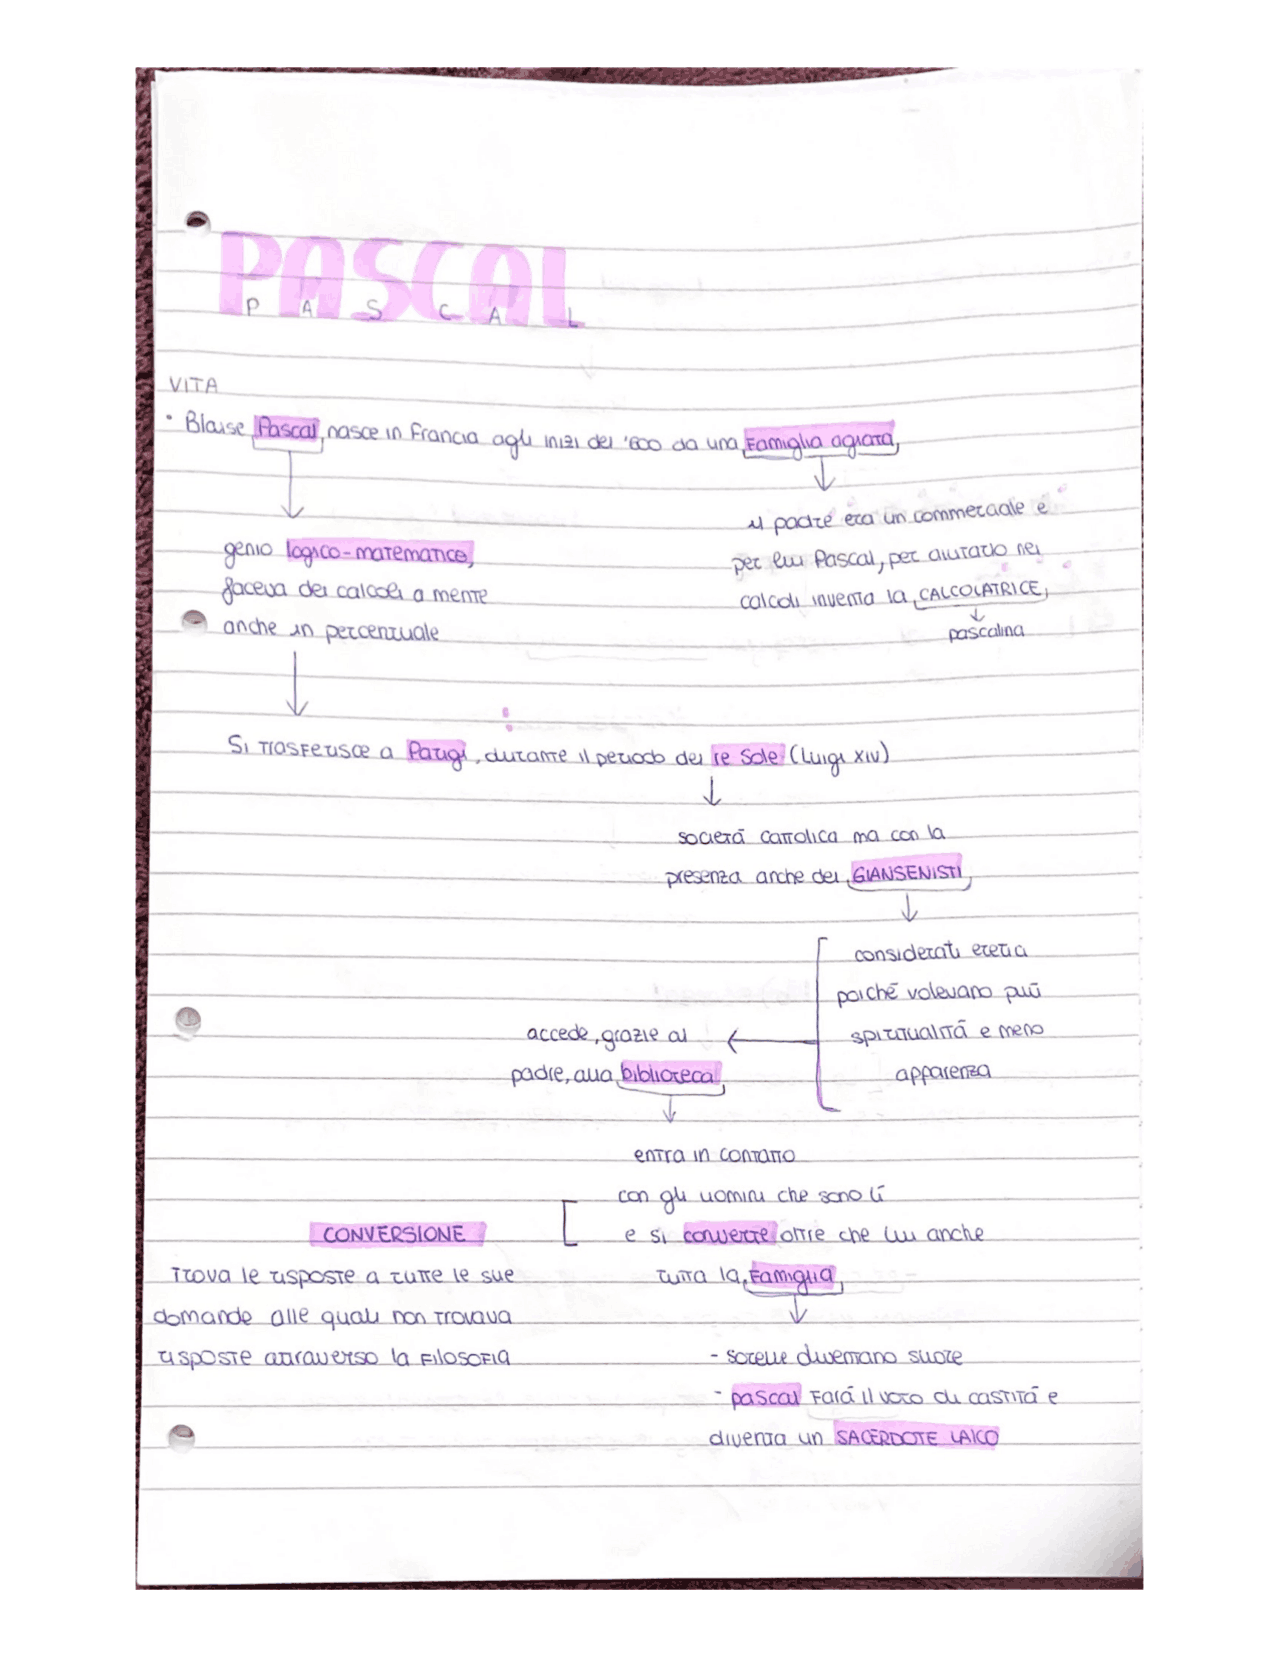 PASCAL
P A S C A L
VITA
• Blaise Pascal, nasce in Francia agli inizi del '600 da una Famiglia agiata,
il padre era un commerciale e
per lui Pascal, per aiutarlo nei
calcoli inventa la CALCOLATRICE,
pascalina
genio logico-matematico,
faceva dei calcoli a mente
anche in percentuale
Si trasferisce a Parigi, durante il periodo del re Sole (Luigi XIV)
società cattolica ma con la
presenza anche dei GIANSENISTI
considerati eretici
poiché volevano più
spiritualità e meno
apparenza
accede, grazie al
padre, alla biblioteca
entra in contatto
con gli uomini che sono lì
e si converte oltre che lui anche
tutta la Famiglia
CONVERSIONE
Trova le risposte a tutte le sue
domande alle quali non trovava
risposte attraverso la FILOSOFIA
- sorelle diventano suore
- pascal Farà il voto di castità e
diventa un SACERDOTE LAICO